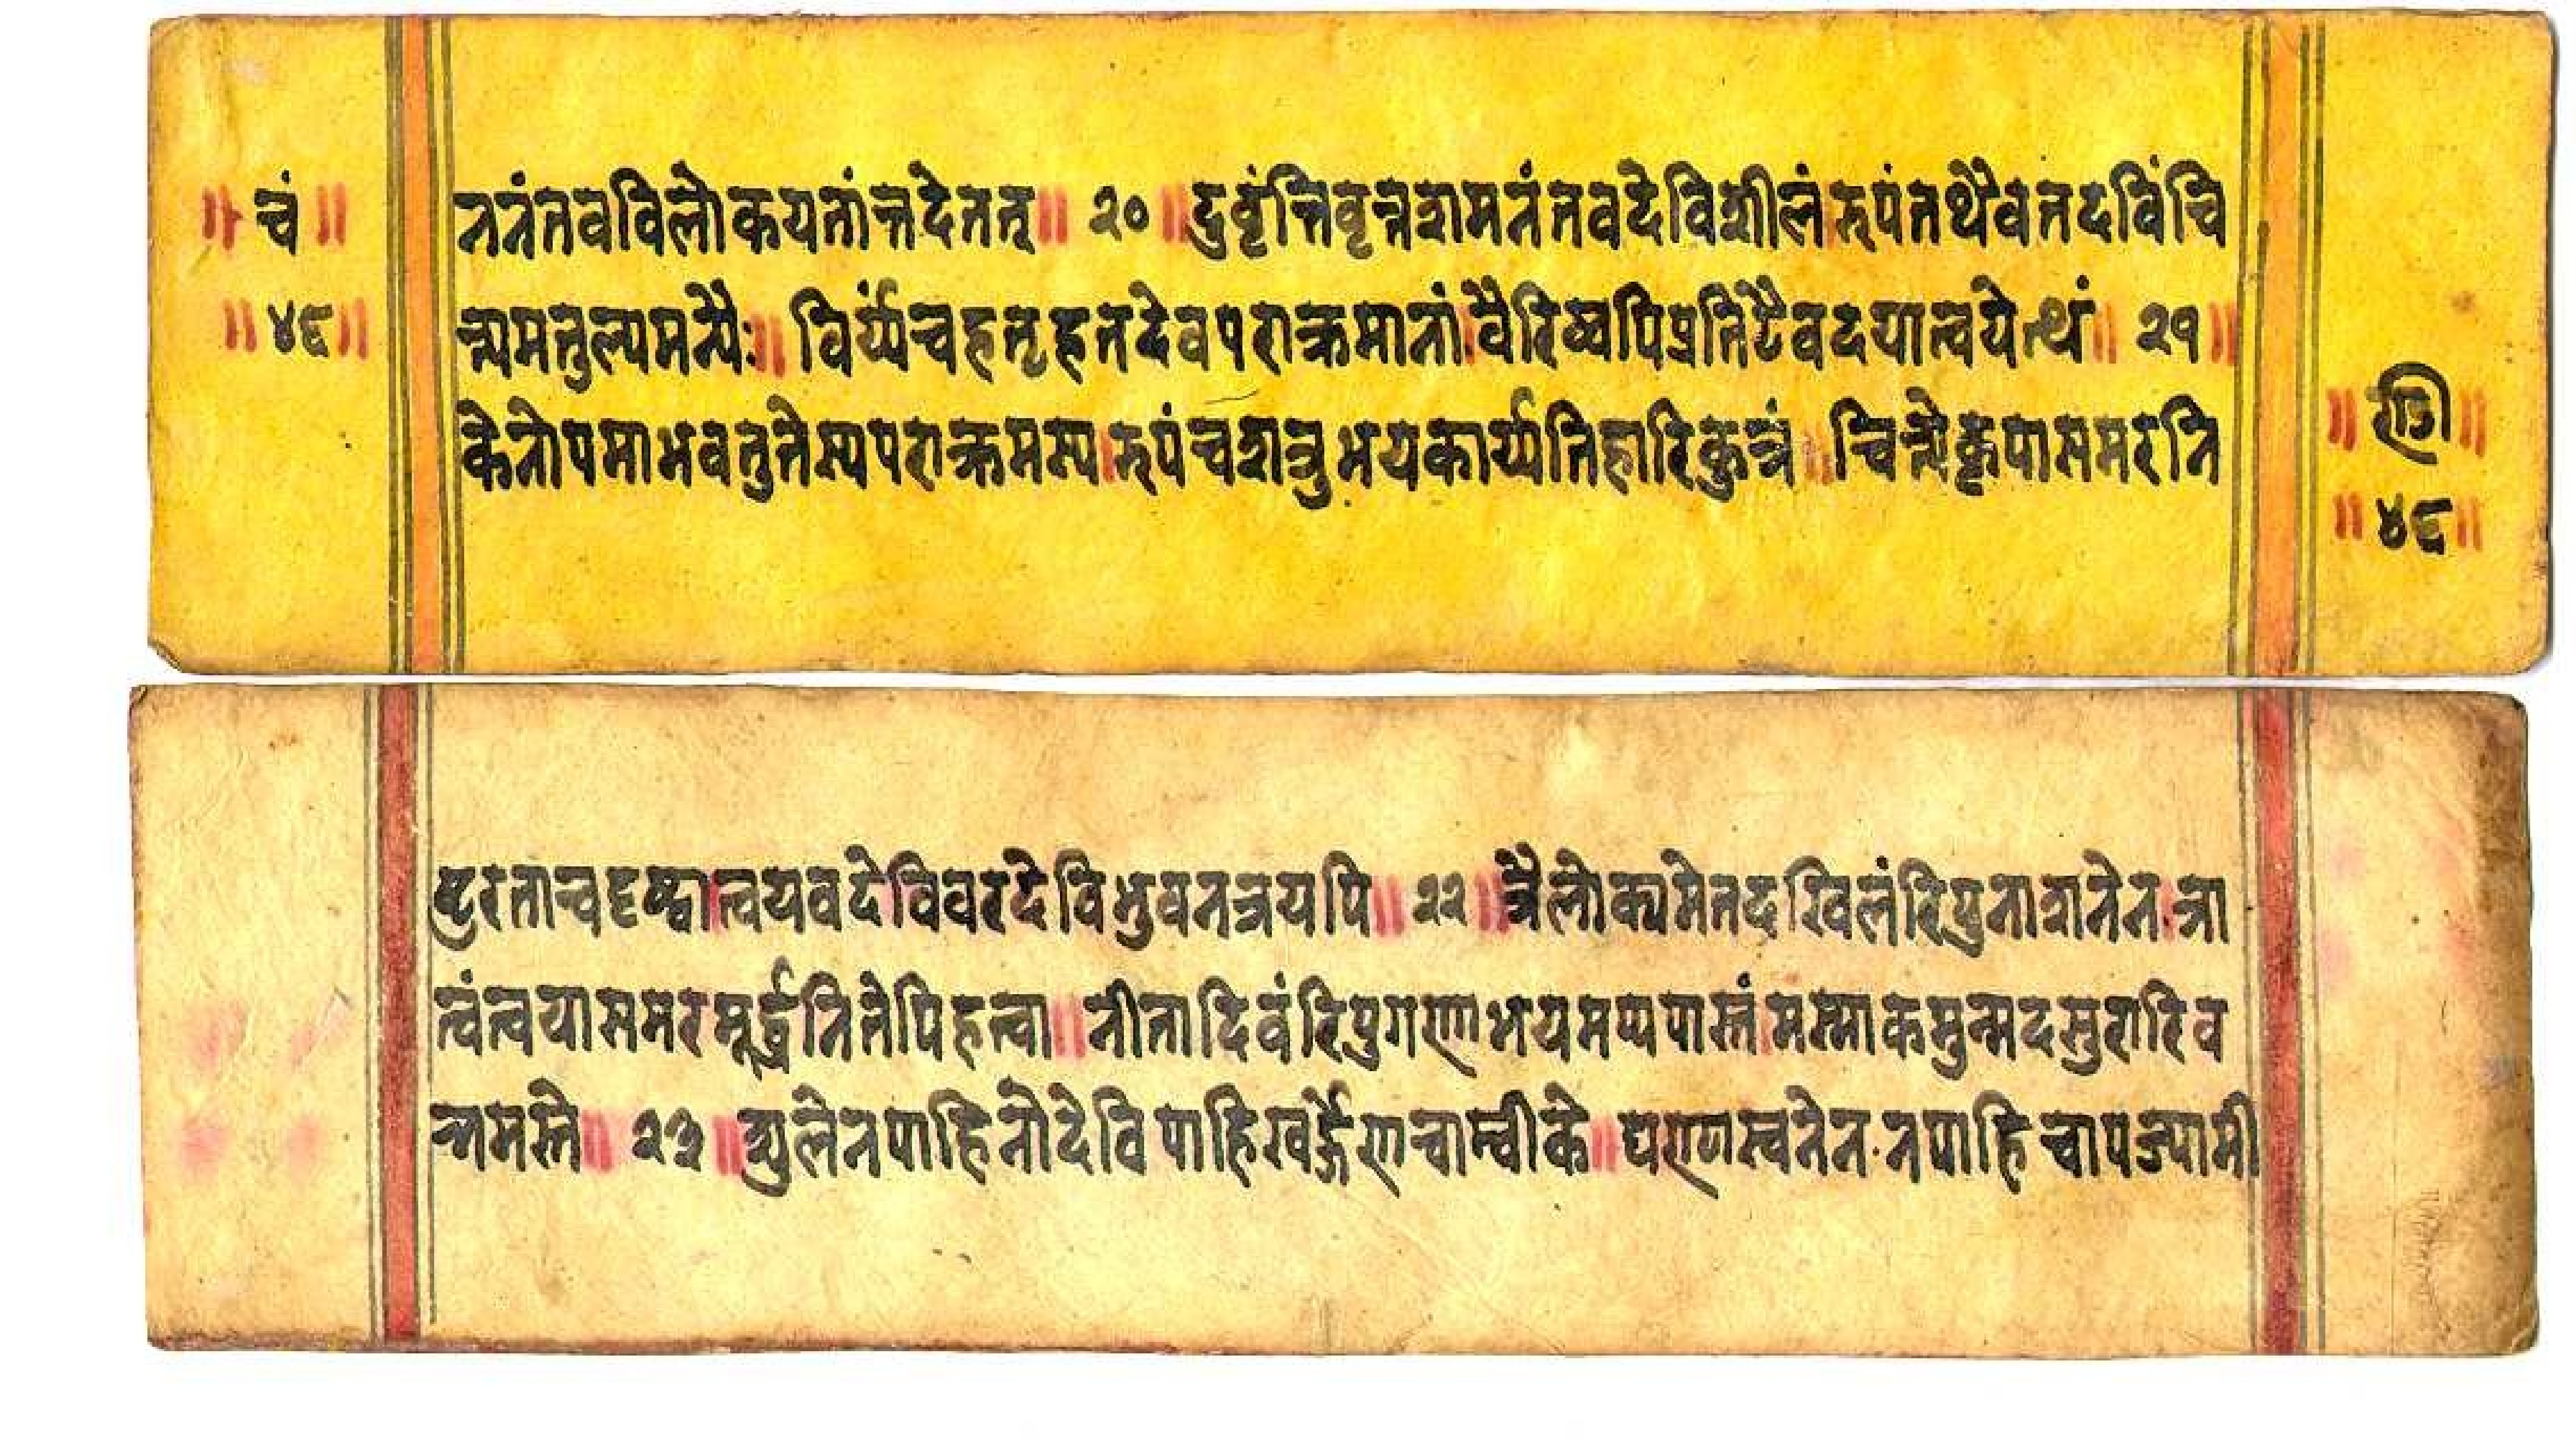 ॥ चं ॥
॥ ४९ ॥
ननंतवविलोकयतांत्तदेतत् ॥ २० ॥ दुर्वृंत्तिवृत्तशमनंतवदेविशीलं।रूपंतथैवतदविंचि
न्त्यमतुल्यमन्यैः ॥ विर्य्यंचहतृहृतदेवपराक्रमानां।वैरिष्वपिप्रतिटैवदयात्वयेत्थं ॥ २१ ॥
केनोपमाभवतुतेस्यपराक्रमस्य।रूपंचशत्रुभयकार्य्यतिहारिकुत्रं ॥ चित्तेकृपासमरनि
॥ ४९ ॥
ष्टुरताचदृष्ट्वा।त्वयवदेविवरदेविभुवनत्रयपि ॥ २२ ॥ त्रैलोक्यमेतदखिलंरिपुनाशनेन।त्रा
त्वंत्वयासमरमूर्द्धनितेपिहत्वा ॥ नीतादिवंरिपुगणाभयमप्यपास्तं।मस्माकमुन्मदसुरारिव
न्नमस्ते ॥ २३ ॥ शुलेनपाहिनोदेविपाहिखर्ड्गेणचाम्बीके ॥ घण्टास्वनेन.नपाहिचापज्यामी